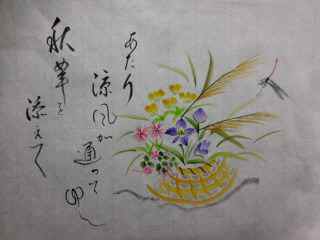 あたり
涼風が
通って
ゆく
秋草を
添えて